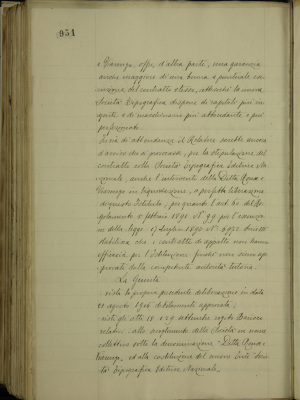 951
e Vianengo, offre, d'altra parte, una garanzia
anche maggiore di una buona e puntuale ese-
cuzione del contratto stesso, attesochè la nuova
Società Tipografica dispone di capitali più in-
genti e di macchinario più abbondante e più
perfezionato.
In via di abbondanza il Relatore sarebbe ancora
d'avviso che si provocasse, per la stipulazione del
contratto colla Società Tipografica Editrice Na-
zionale, anche l'intervento della Ditta Roux e
in liquidazione, a perfetta liberazione
di questo Istituto, per quanto l'art. 60 del Re-
golamento 5 febbraio 1891 Nº 99 per l'esecuzio-
ne della legge 17 luglio 1890 Nº 6972
stabilisca che i contratti di appalto non hanno
efficacia per l'Istituzione finchè non siano ap-
provati dalla competente autorità tutoria.
La Giunta
vista la propria precedente deliberazione in data
21 agosto 1906 debitamente approvata;
visti gli atti 19 e 29 settembre rogito
relativi allo scioglimento della Società in nome
collettivo sotto la denominazione "Ditta Roux e
ed alla costituzione del nuovo Ente Socie-
tà Tipografica Editrice Nazionale.